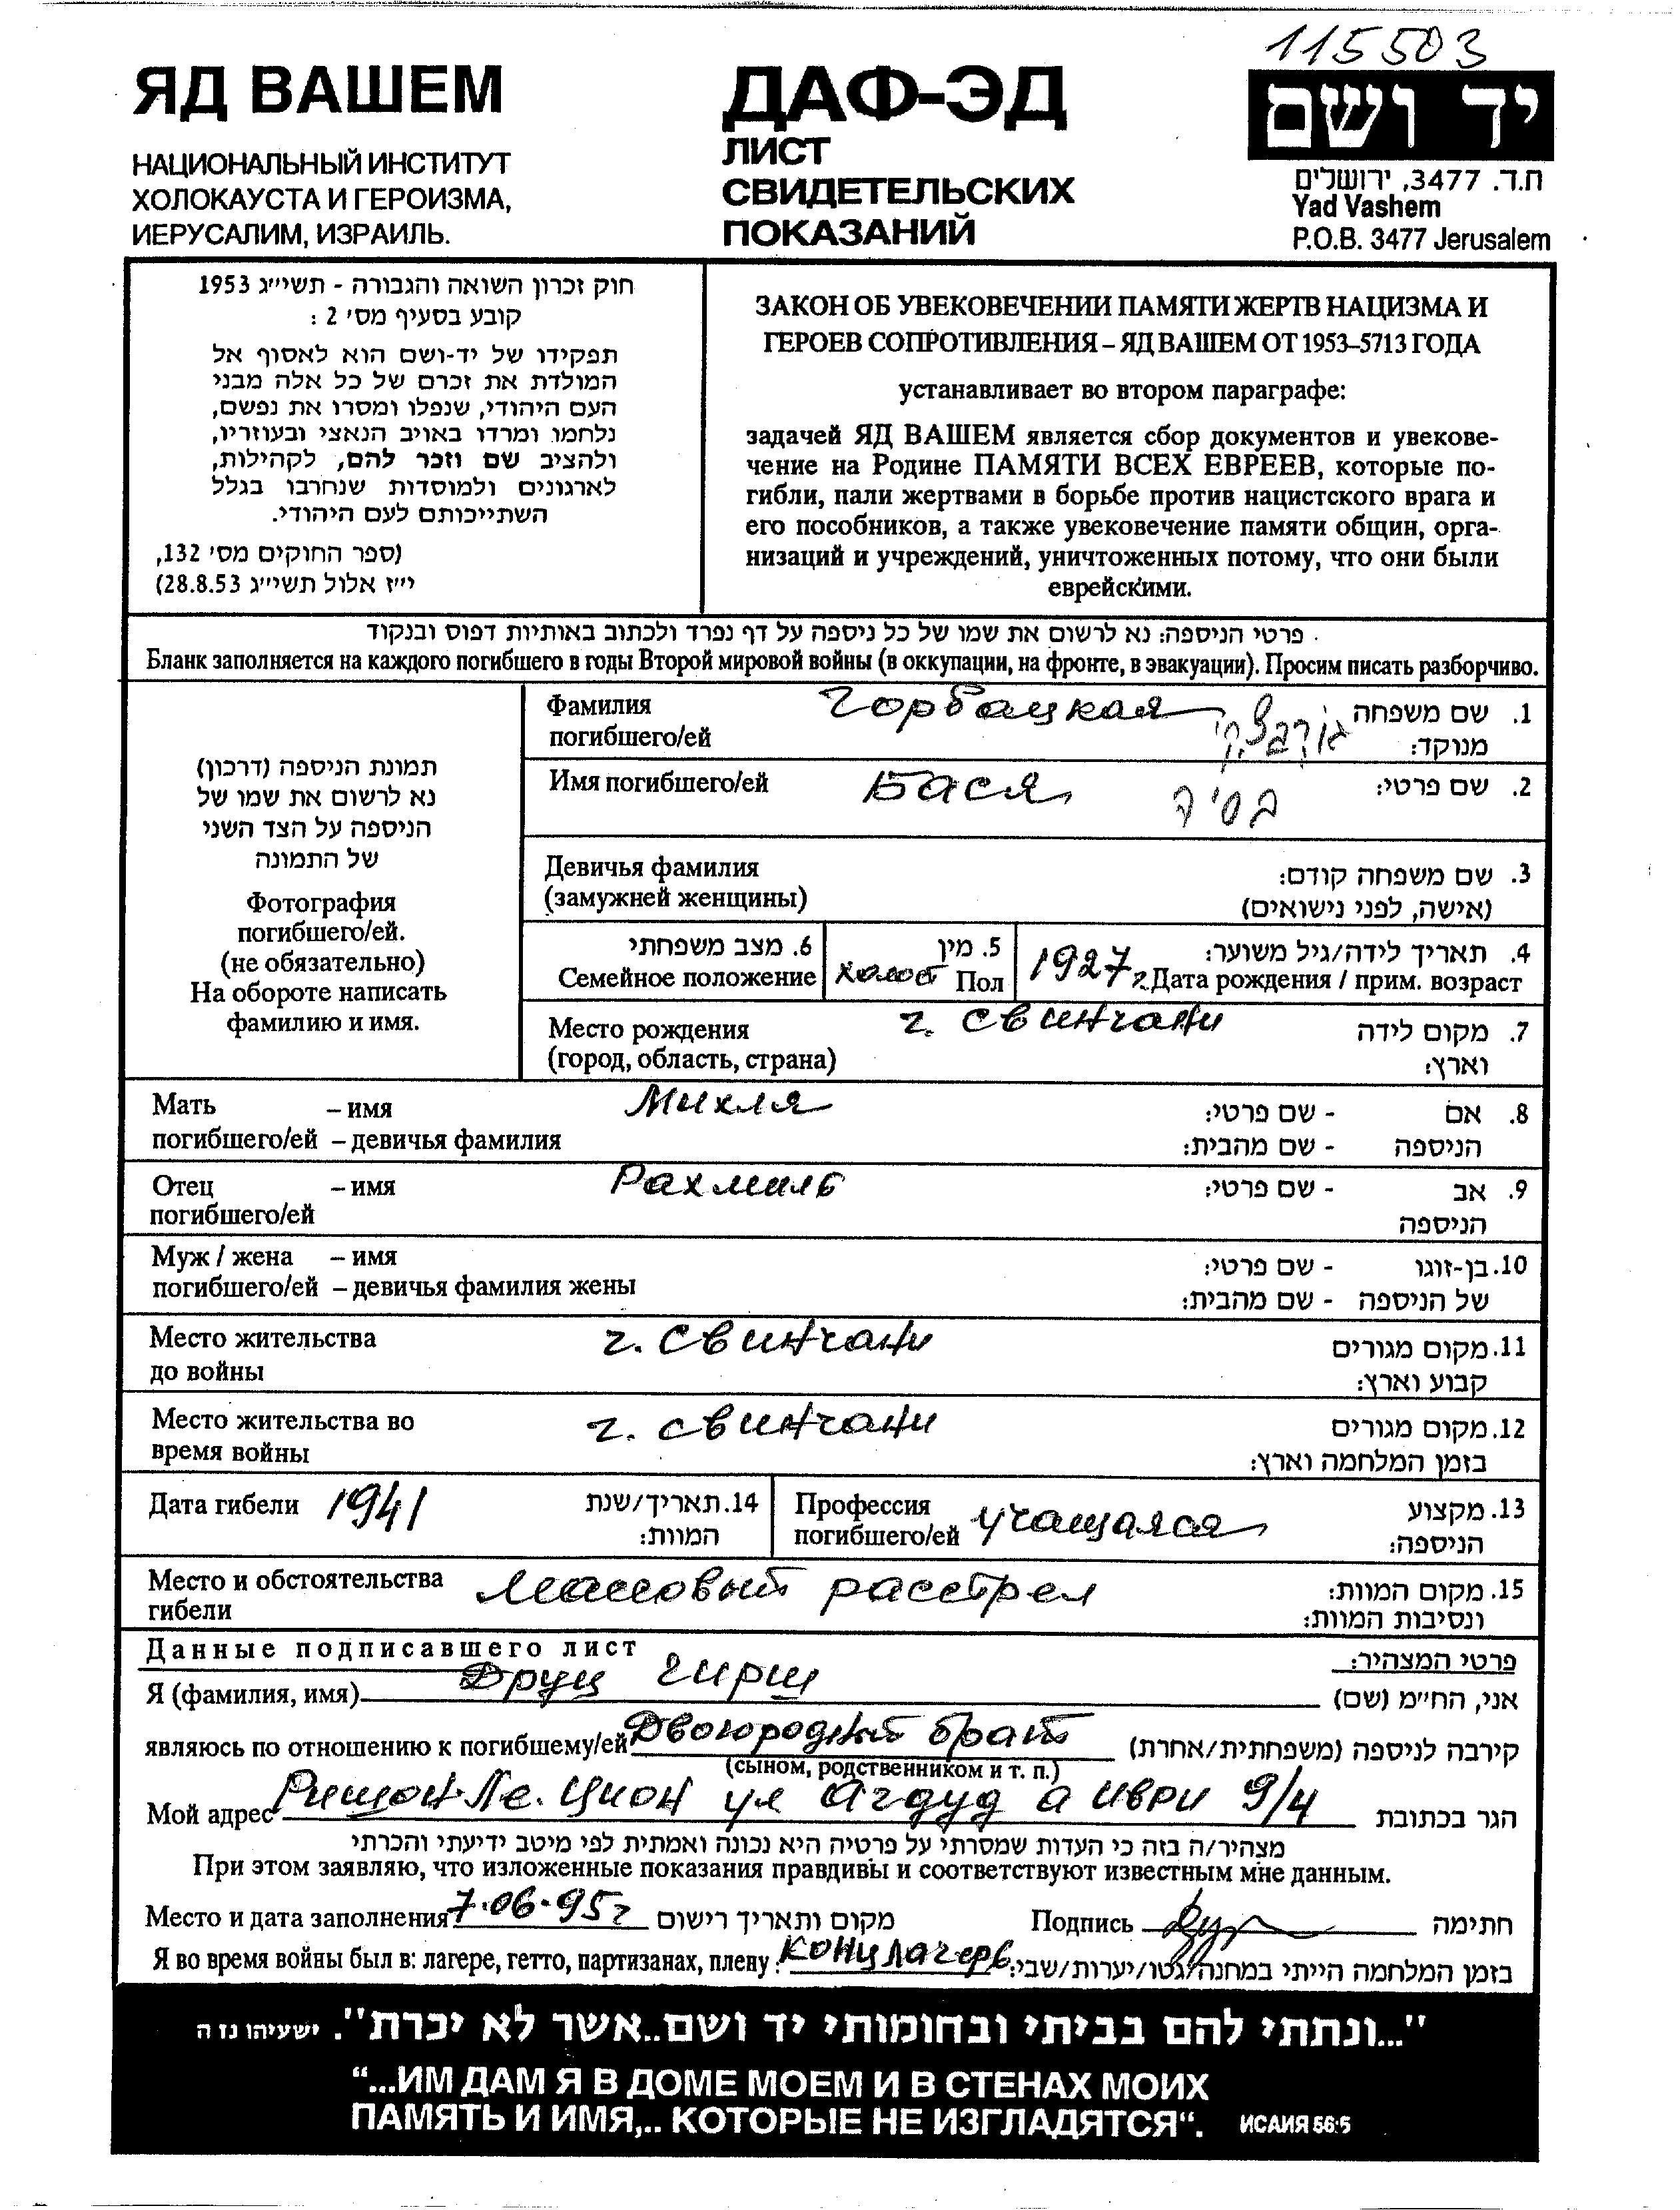 115503
ЯД ВАШЕМ
НАЦИОНАЛЬНЫЙ ИНСТИТУТ
ХОЛОКАУСТА И ГЕРОИЗМА,
ИЕРУСАЛИМ, ИЗРАИЛЬ.
ДАФ-ЭД
ЛИСТ
СВИДЕТЕЛЬСКИХ
ПОКАЗАНИЙ
יד ושם
ת.ד. 3477, ירושלים
Yad Vashem
P.O.B. 3477 Jerusalem
חוק זכרון השואה והגבורה - תשי״ג 1953
קובע בסעיף מס׳ 2 :
תפקידו של יד-ושם הוא לאסוף אל
המולדת את זכרם של כל אלה מבני
העם היהודי, שנפלו ומסרו את נפשם,
נלחמו ומרדו באויב הנאצי ובעוזריו,
ולהציב שם וזכר להם, לקהילות,
לארגונים ולמוסדות שנחרבו בגלל
השתייכותם לעם היהודי.
(ספר החוקים מס׳ 132,
י״ז אלול תשי״ג 28.8.53)
ЗАКОН ОБ УВЕКОВЕЧЕНИИ ПАМЯТИ ЖЕРТВ НАЦИЗМА И
ГЕРОЕВ СОПРОТИВЛЕНИЯ – ЯД ВАШЕМ ОТ 1953–5713 ГОДА
устанавливает во втором параграфе:
задачей ЯД ВАШЕМ является сбор документов и увекове-
чение на Родине ПАМЯТИ ВСЕХ ЕВРЕЕВ, которые по-
гибли, пали жертвами в борьбе против нацистского врага и
его пособников, а также увековечение памяти общин, орга-
низаций и учреждений, уничтоженных потому, что они были
еврейскими.
פרטי הניספה: נא לרשום את שמו של כל ניספה על דף נפרד ולכתוב באותיות דפוס ובנקוד
Бланк заполняется на каждого погибшего в годы Второй мировой войны (в оккупации, на фронте, в эвакуации). Просим писать разборчиво.
תמונת הניספה (דרכון)
נא לרשום את שמו של
הניספה על הצד השני
של התמונה
Фотография
погибшего/ей.
(не обязательно)
На обороте написать
фамилию и имя.
Фамилия Горбацкая גורבצקי 1. שם משפחה
погибшего/ей מנוקד:
Имя погибшего/ей Бася בסיה 2. שם פרטי:
Девичья фамилия 3. שם משפחה קודם:
(замужней женщины) (אישה, לפני נישואים)
6. מצב משפחתי 5. מין 4. תאריך לידה/גיל משוער:
Семейное положение холост Пол 1927 г. Дата рождения / прим. возраст
Место рождения г. Свинчани 7. מקום לידה
(город, область, страна) וארץ:
Мать – имя Михля 8. אם - שם פרטי:
погибшего/ей – девичья фамилия הניספה - שם מהבית:
Отец – имя Рахмиль 9. אב - שם פרטי:
погибшего/ей הניספה
Муж / жена – имя 10. בן-זוגו - שם פרטי:
погибшего/ей – девичья фамилия жены של הניספה - שם מהבית:
Место жительства г. Свинчани 11. מקום מגורים
до войны קבוע וארץ:
Место жительства во г. Свинчани 12. מקום מגורים
время войны בזמן המלחמה וארץ:
Дата гибели 1941 14. תאריך/שנת
המוות:
Профессия учащаяся 13. מקצוע
погибшего/ей הניספה:
Место и обстоятельства массовый расстрел 15. מקום המוות:
гибели ונסיבות המוות:
Данные подписавшего лист פרטי המצהיר:
Я (фамилия, имя) Друц Гирш אני, הח״מ (שם)
являюсь по отношению к погибшему/ей Двоюродный брат קירבה לניספה (משפחתית/אחרת)
(сыном, родственником и т. п.)
Мой адрес Ришон-Ле. Цион ул Агдуд а иври 9/4 הגר בכתובת
מצהיר/ה בזה כי העדות שמסרתי על פרטיה היא נכונה ואמתית לפי מיטב ידיעתי והכרתי
При этом заявляю, что изложенные показания правдивы и соответствуют известным мне данным.
Место и дата заполнения 7.06.95г מקום ותאריך רישום Подпись חתימה
Я во время войны был в: лагере, гетто, партизанах, плену: концлагерь בזמן המלחמה הייתי במחנה/גטו/יערות/שבי:
"...ונתתי להם בביתי ובחומותי יד ושם..אשר לא יכרת". ישעיהו נז ה
“...ИМ ДАМ Я В ДОМЕ МОЕМ И В СТЕНАХ МОИХ
ПАМЯТЬ И ИМЯ,.. КОТОРЫЕ НЕ ИЗГЛАДЯТСЯ“. ИСАИЯ 56:5